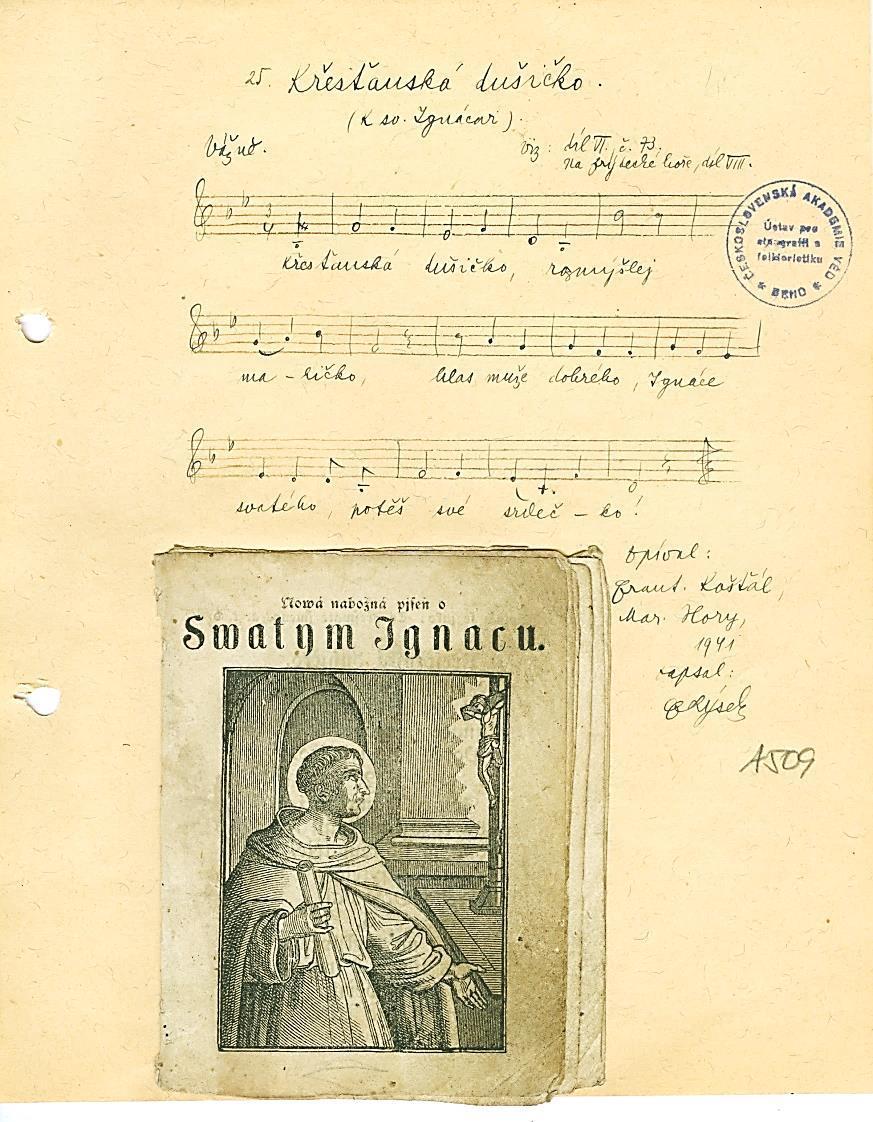 25. Křesťanská dušičko.
(K sv. Ignácovi).
Vážně.
viz: díl VI. č. 73.
na frýdecké hoře, díl VIII.
3
4
Křesťanská dušičko, rozmýšlej
ma - ličko, hlas muže dobrého, Ignáce
svatého, potěš své srdeč - ko!
ČESKOSLOVENSKÁ AKADEMIE VĚD
Ústav pro
etnografii a
folkloristiku
BRNO
zpíval:
Frant. Košťál,
Mar. Hory,
1941
zapsal:
Lýsek
A509
Nowá nábožná pjseň o
Swatym Ignacu.